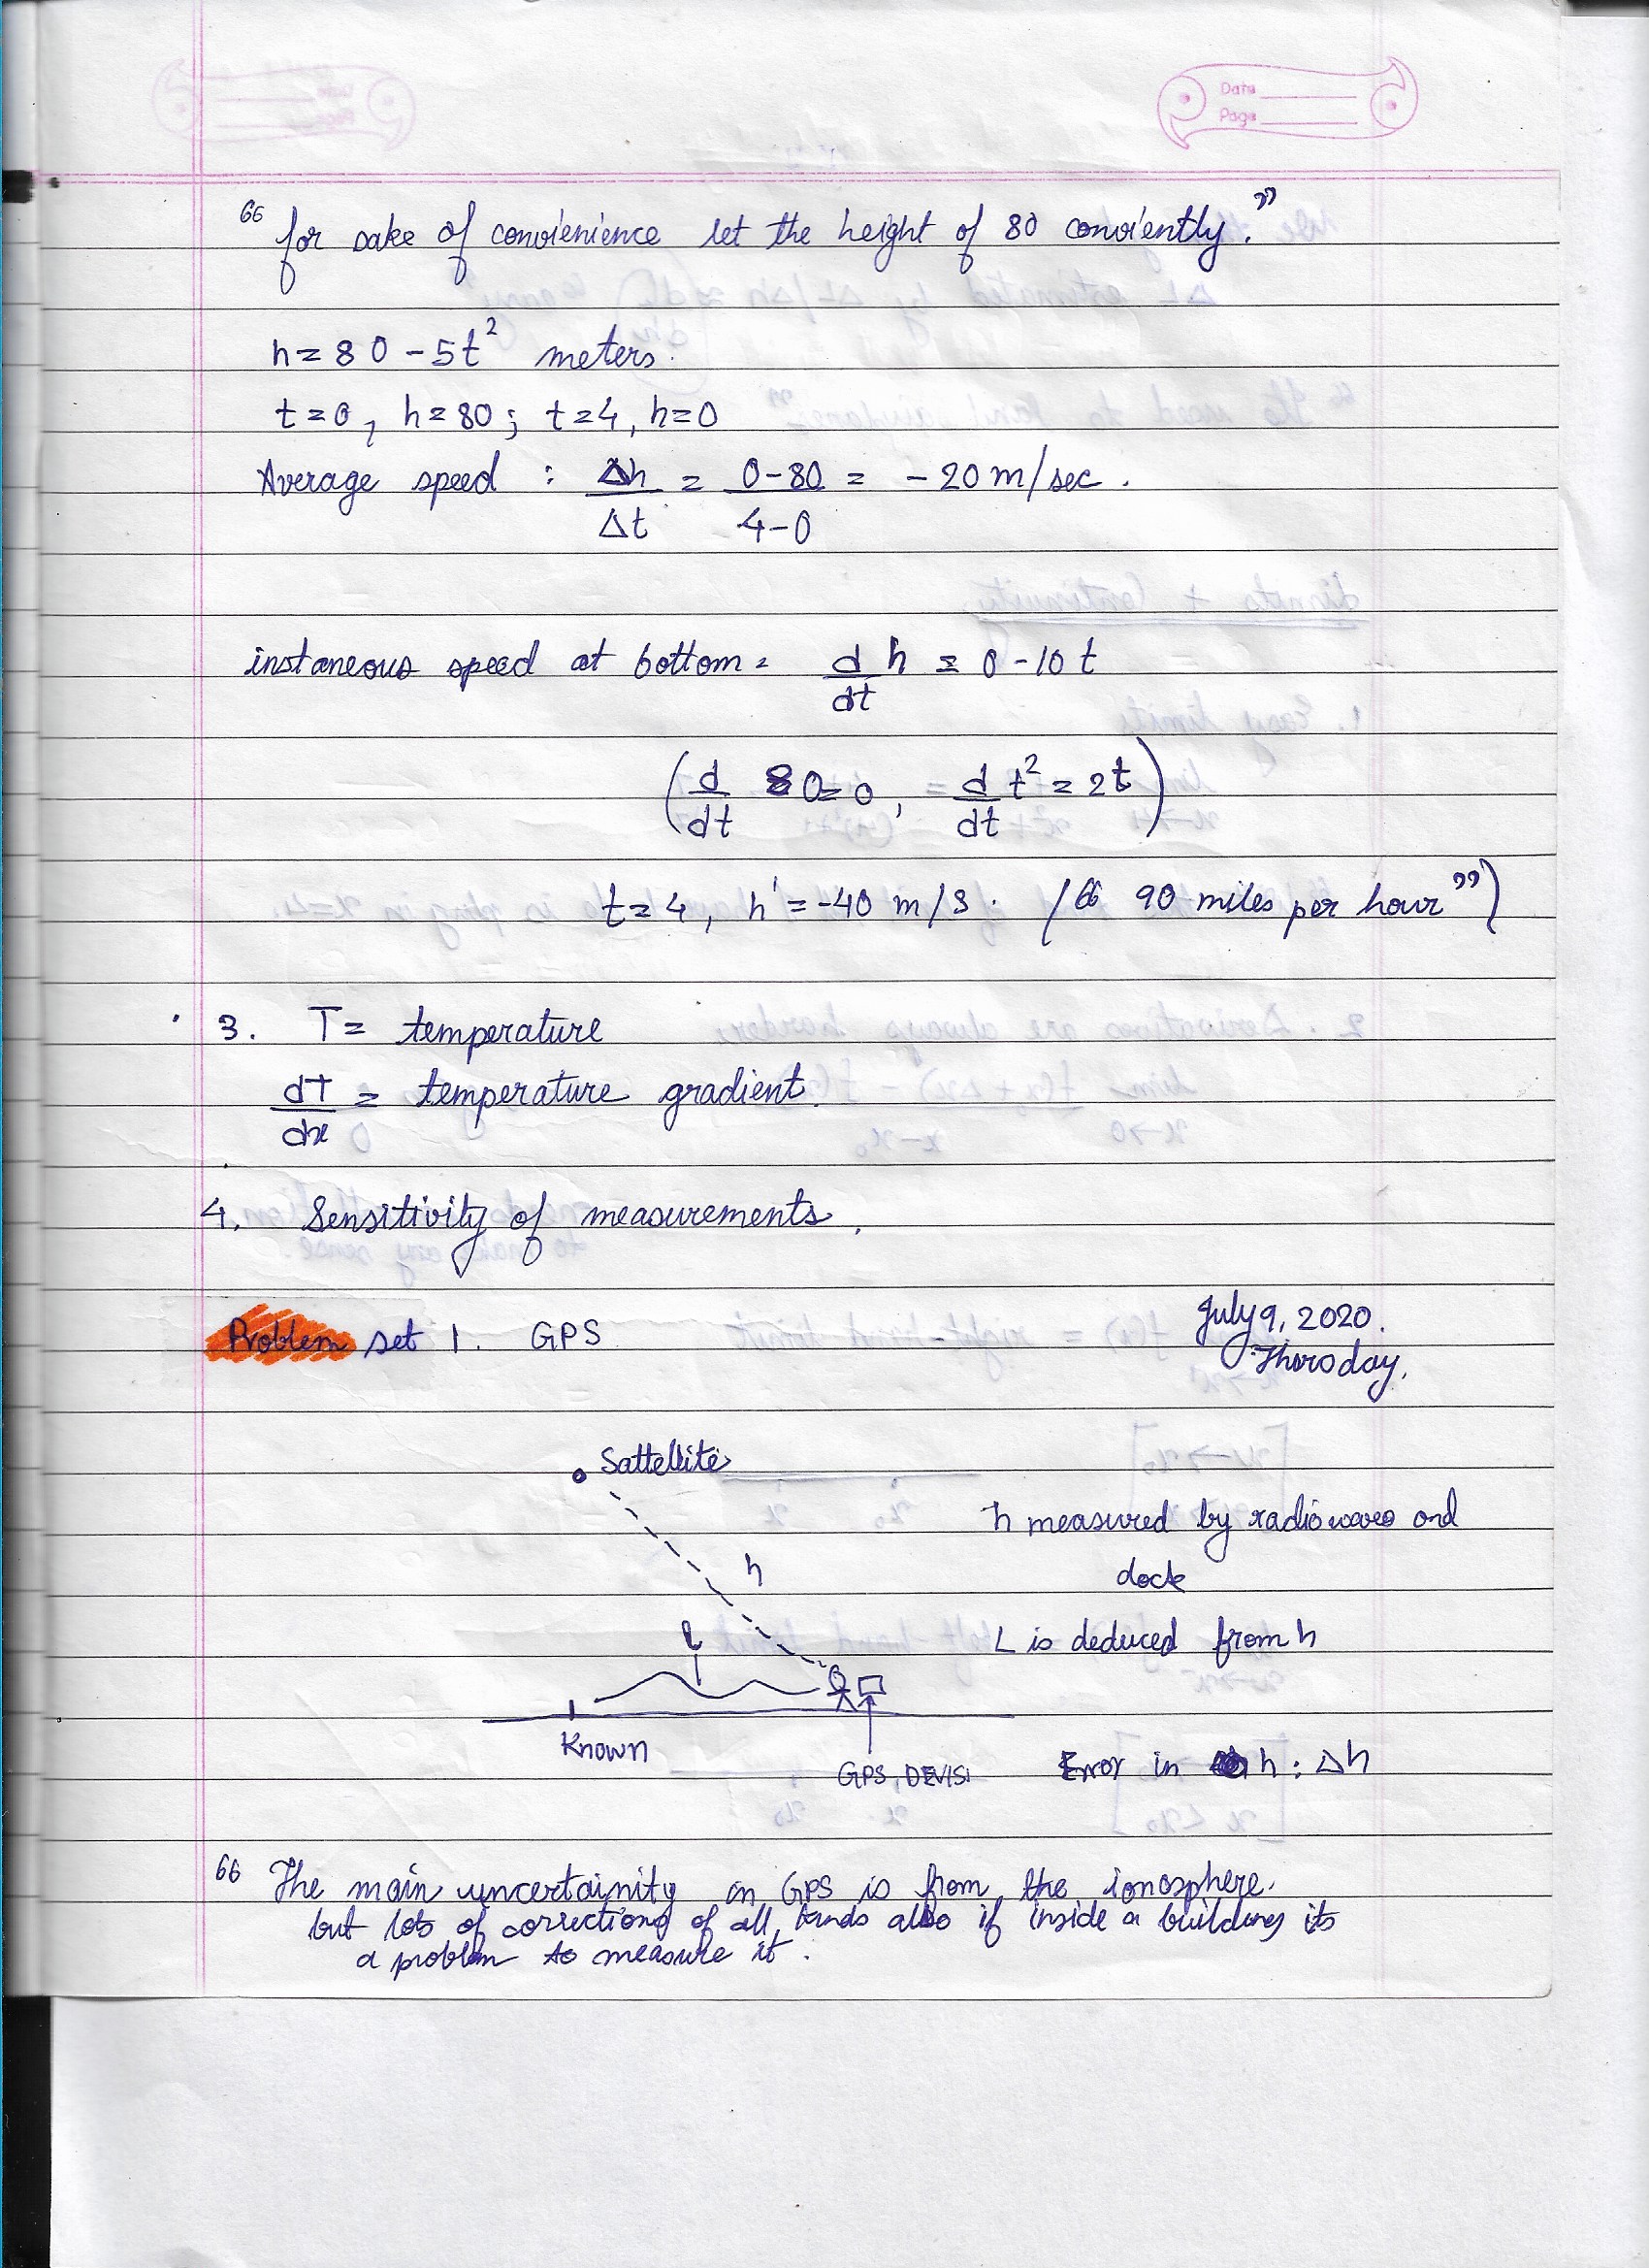 Data
Page
“ for sake of convienience let the height of 80 conviently. ”
h = 80 - 5t² meters.
t = 0, h = 80 ; t = 4, h = 0
Average speed : Δh/Δt = 0-80/4-0 = - 20 m/sec .
instaneous speed at bottom = d/dt h = 0 - 10 t
(d/dt 80 = 0, = d/dt t² = 2t)
t = 4, h' = -40 m/s . (“ 90 miles per hour ”)
3. T = temperature
dT/dx = temperature gradient.
4. Sensitivity of measurements.
Problem set 1. GPS
July 9, 2020.
Thursday.
Sattellite
h measured by radiowaves and
clock
h
L is deduced from h
l
Known
GPS, DEVISI
Error in h : Δh
“ The main uncertainity in GPS is from the ionosphere.
but lots of corrections of all kinds also if inside a building its
a problem to measure it .